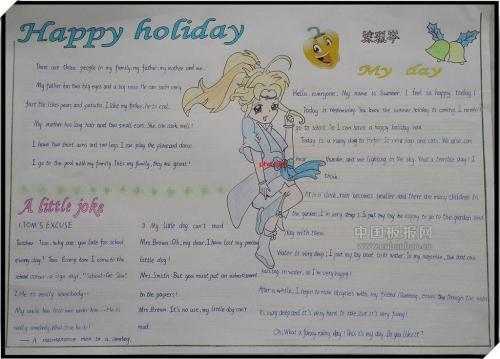 Happy holiday
There are three people in my family, my father, my mother and me.
My father has two big eyes and a big nose. He can swim very
fast. He likes pears and potatoes. I like my father, he is cool.
My mother has long hair and two small ears. She can cook well!
I have two short arms and two legs. I can play the piano and dance.
I go to the pool with my family. This my family, they are great!
A little joke
1. TOM'S EXCUSE
Teacher: Tom, why are you late for school
every day? Tom: Every time I come to the
school corner, a sign says, "School-Go Slow".
2. He is really somebody
My uncle has 1000 men under him. --He is
really somebody. What does he do?
— A maintenance man in a cemetery.
3. My little dog can't read
Mrs. Brown: Oh, my dear, I have lost my precious
little dog!
Mrs. Smith: But you must put an advertisement
in the papers!
Mrs. Brown: It's no use, my little dog can't
read.
My day
Hello everyone, My name is Summer. I feel so happy today!
Today is Wednesday. You know the summer holiday is coming, I needn't
go to school. So I can have a happy holiday now.
Today is a rainy day. It's raining cats and dogs. We also can
hear thunder, and see lightning in the sky. What a terrible day! I
think.
At six o'clock, rain becomes smaller, and there are many children in
the garden. I'm very happy. I put my toy and be happy to go to the garden and
play with them.
Water is very deep; I put my toy boat into water. In my imagination, the boat can
sailing in water, so I'm very happy!
After a while, I begin to ride bicycles with my friend
is very deep and it's very hard to ride, but it's very funny!
Oh, What a funny rainy day! This is my day. Do you like it?
中国板报网